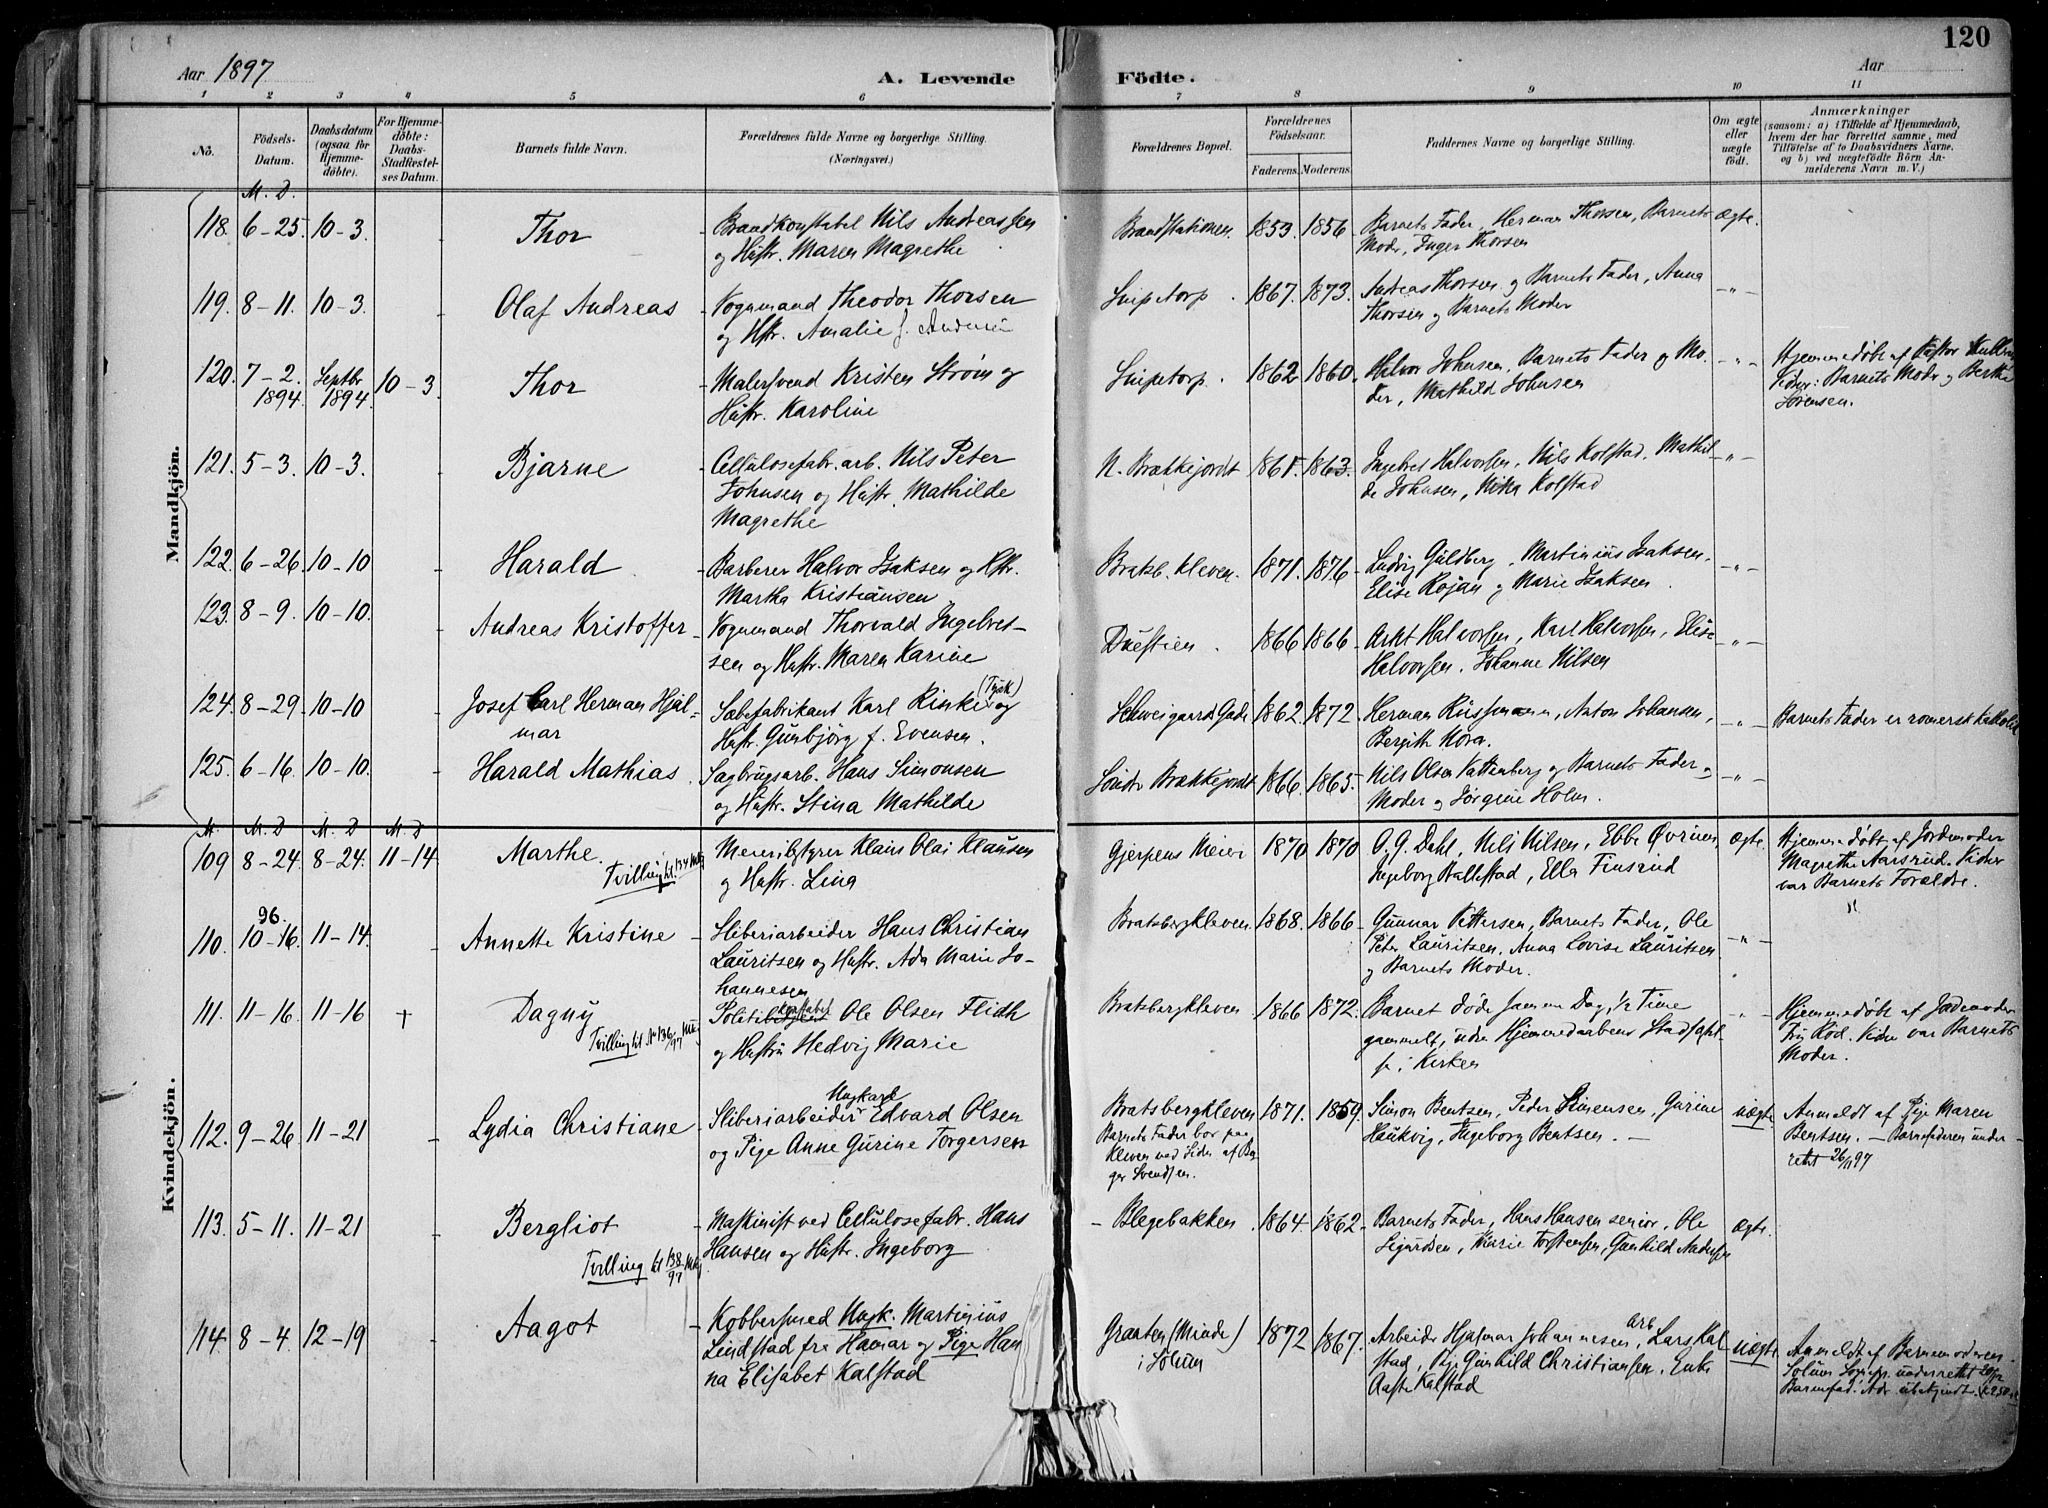 120
Aar 1897
A. Levende
Födte.
Aar
1 2 3 4 5 6 7 8 9 10 11
No.
Födsels-Datum.
Daabsdatum (ogsaa for Hjemmedöbte).
For Hjemmedöbte: Daabs-Stadfestelses Datum.
Barnets fulde Navn.
Forældrenes fulde Navne og borgerlige Stilling.
(Næringsvei.)
Forældrenes Bopæl.
Forældrenes Födselsaar.
Faderens. Moderens.
Faddernes Navne og borgerlige Stilling.
Om ægte eller uægte födt.
Anmærkninger
(saasom: a) i Tilfælde af Hjemmedaab, hvem der har forrettet samme, med Tilföielse af to Daabsvidners Navne, og b) ved uægtefödte Börn Anmelderens Navn m. V.)
Mandkjön.
M. D.
118. 6-25. 10-3. Thor
Brandkonstabel Nils Andreassen
og Hustr. Maren Magrethe
Brandstationen. 1853. 1856.
Barnets Fader, Herman Thorsen, Barnets
Moder, Inger Thorsen
Ægte.
119. 8-11. 10-3. Olaf Andreas
Vognmand Theodor Thorsen
og Hstr. Amalie f. Andersen
Snipetorp. 1867. 1873.
Andreas Thorsen og Barnets Fader, Anna
Thorsen og Barnets Moder
-"-
120. 7-2. 1894. Septbr 1894. 10-3. Thor
Malersvend Kristen Strøm og
Hustr. Karoline
Snipetorp. 1862 1860.
Halvor Johnsen, Barnets Fader og Mo-
der, Mathild Johnsen
-"-
Hjemmedøbt af Pastor
Vidner: Barnets Moder og Berthe
Sørensen.
121. 5-3. 10-3. Bjarne
Cellulosefabr. arb. Nils Peter
Johnsen og Hustr. Mathilde
Magrethe
N. Brækkejordt 1861. 1863.
Ingebret Halvorsen, Nils Kolstad, Mathil-
de Johnsen, Kolstad
-"-
122. 6-26. 10-10. Harald
Barberer Halvor Isaksen og Hstr.
Martha Kristiansen
Bratsb. kleven. 1871. 1876.
Ludvig Guldberg, Martinius Isaksen,
Elise Rojan og Marie Isaksen.
-"-
123. 8-9. 10-10. Andreas Kristoffer
Vognmand Thorvald Ingebret-
sen og Hustr. Maren Karine
Duestien. 1866 1866
Halvorsen, Karl Halvorsen, Elise
Halvorsen, Johanne Nilsen
-"-
124. 8-29. 10-10. Josef Carl Herman Hjal-
mar
Sæbefabrikant Karl Rinke (Tysk) og
Hustr. Gunbjørg f. Evensen.
Schweigaards Gade 1862. 1872.
Herman Anton Johansen,
Bergith
-"-
Barnets Fader er romersk Katholik
125. 6-16. 10-10. Harald Mathias
Sagbrugsarb. Hans Simonsen
og Hustr. Stina Mathilde
Søndr Brækkejordt 1866. 1865.
Nils Olsen Vattenberg og Barnets Fader og
Moder og Jørgine Holm.
-"-
Kvindekjön.
M. M. D M. D M. D
109 8-24. 8-24. 11-14. Marthe.
Tvilling til 134
Meieribstyrer Klaus Olai Klausen
og Hustr. Lina
Gjerpens Meieri 1870 1870
O. G. Dahl, Nils Nilsen, Ebbe
Ingeborg Hallestad, Ella Finsrud
Ægte.
Hjemmedøbt af Jordemoder
Magrethe Aarsrud. Vidner
var Barnets Forældre.
110. 96. 10-16. 11-14. Annette Kristine
Sliberiarbeider Hans Christian
Lauritsen og Hustr. Ada Marie Jo-
hannesen
Bratsbergkleven 1868. 1866
Gunnar Pettersen, Barnets Fader, Ole
Peter Lauritsen, Anna Lovise Lauritsen
og Barnets Moder.
-"-
111. 11-16. 11-16. † Dagny
Tvilling til No 136/97
Politikonstabel Ole Olsen Flidh
og Hustru Hedvig Marie
Bratsbergkleven 1866 1872.
Barnet døde samme Dag, 1/2 Time
gammelt, uden Hjemmedaabens Stadfæstel-
se i Kirken
-"-
Hjemmedøbt af Jordemoder
Rod. Vidne var Barnets
Moder.
112. 9-26. 11-21. Lydia Christiane
Sliberiarbeider Ungkarl Edvard Olsen
og Pige Anne Gurine Torgersen
Bratsbergkleven
Barnets Fader bor paa
Kleven ved Siden af Bir-
ger Svendsen.
1871. 1859.
Simon Bentsen, Peder Simensen, Gurine
Haukvig, Ingeborg Bentsen. -
uægte
Anmeldt af Pige Maren
Bentsen. - Barnefaderen under-
rettet 26/11 97
113. 5-11. 11-21 Bergliot
Tvilling til 138/97
Maskinist ved Cellulosefabr. Hans
Hansen og Hustr. Ingeborg
Blegebakken 1864. 1862.
Barnets Fader, Hans Hansen senior, Ole
Sigurdsen, Marie Torstensen, Gunhild Andersen
ægte.
114. 8-4. 12-19 Aagot
Kobbersmed Ungk. Martinius
Lindstad fra Hamar og Pige Han-
na Elisabet Kalstad
Graaten (Minde)
i Solum
1872 1867.
Arbeider Hjalmar Johannesen, arb. Lars Kal-
stad, Pige Gunhild Christiansen, Enke
Aaste Kalstad
uægte
Anmeldt af Barnemoderen.
Solum underrettet
Barnefad. Adr. ubekjendt.